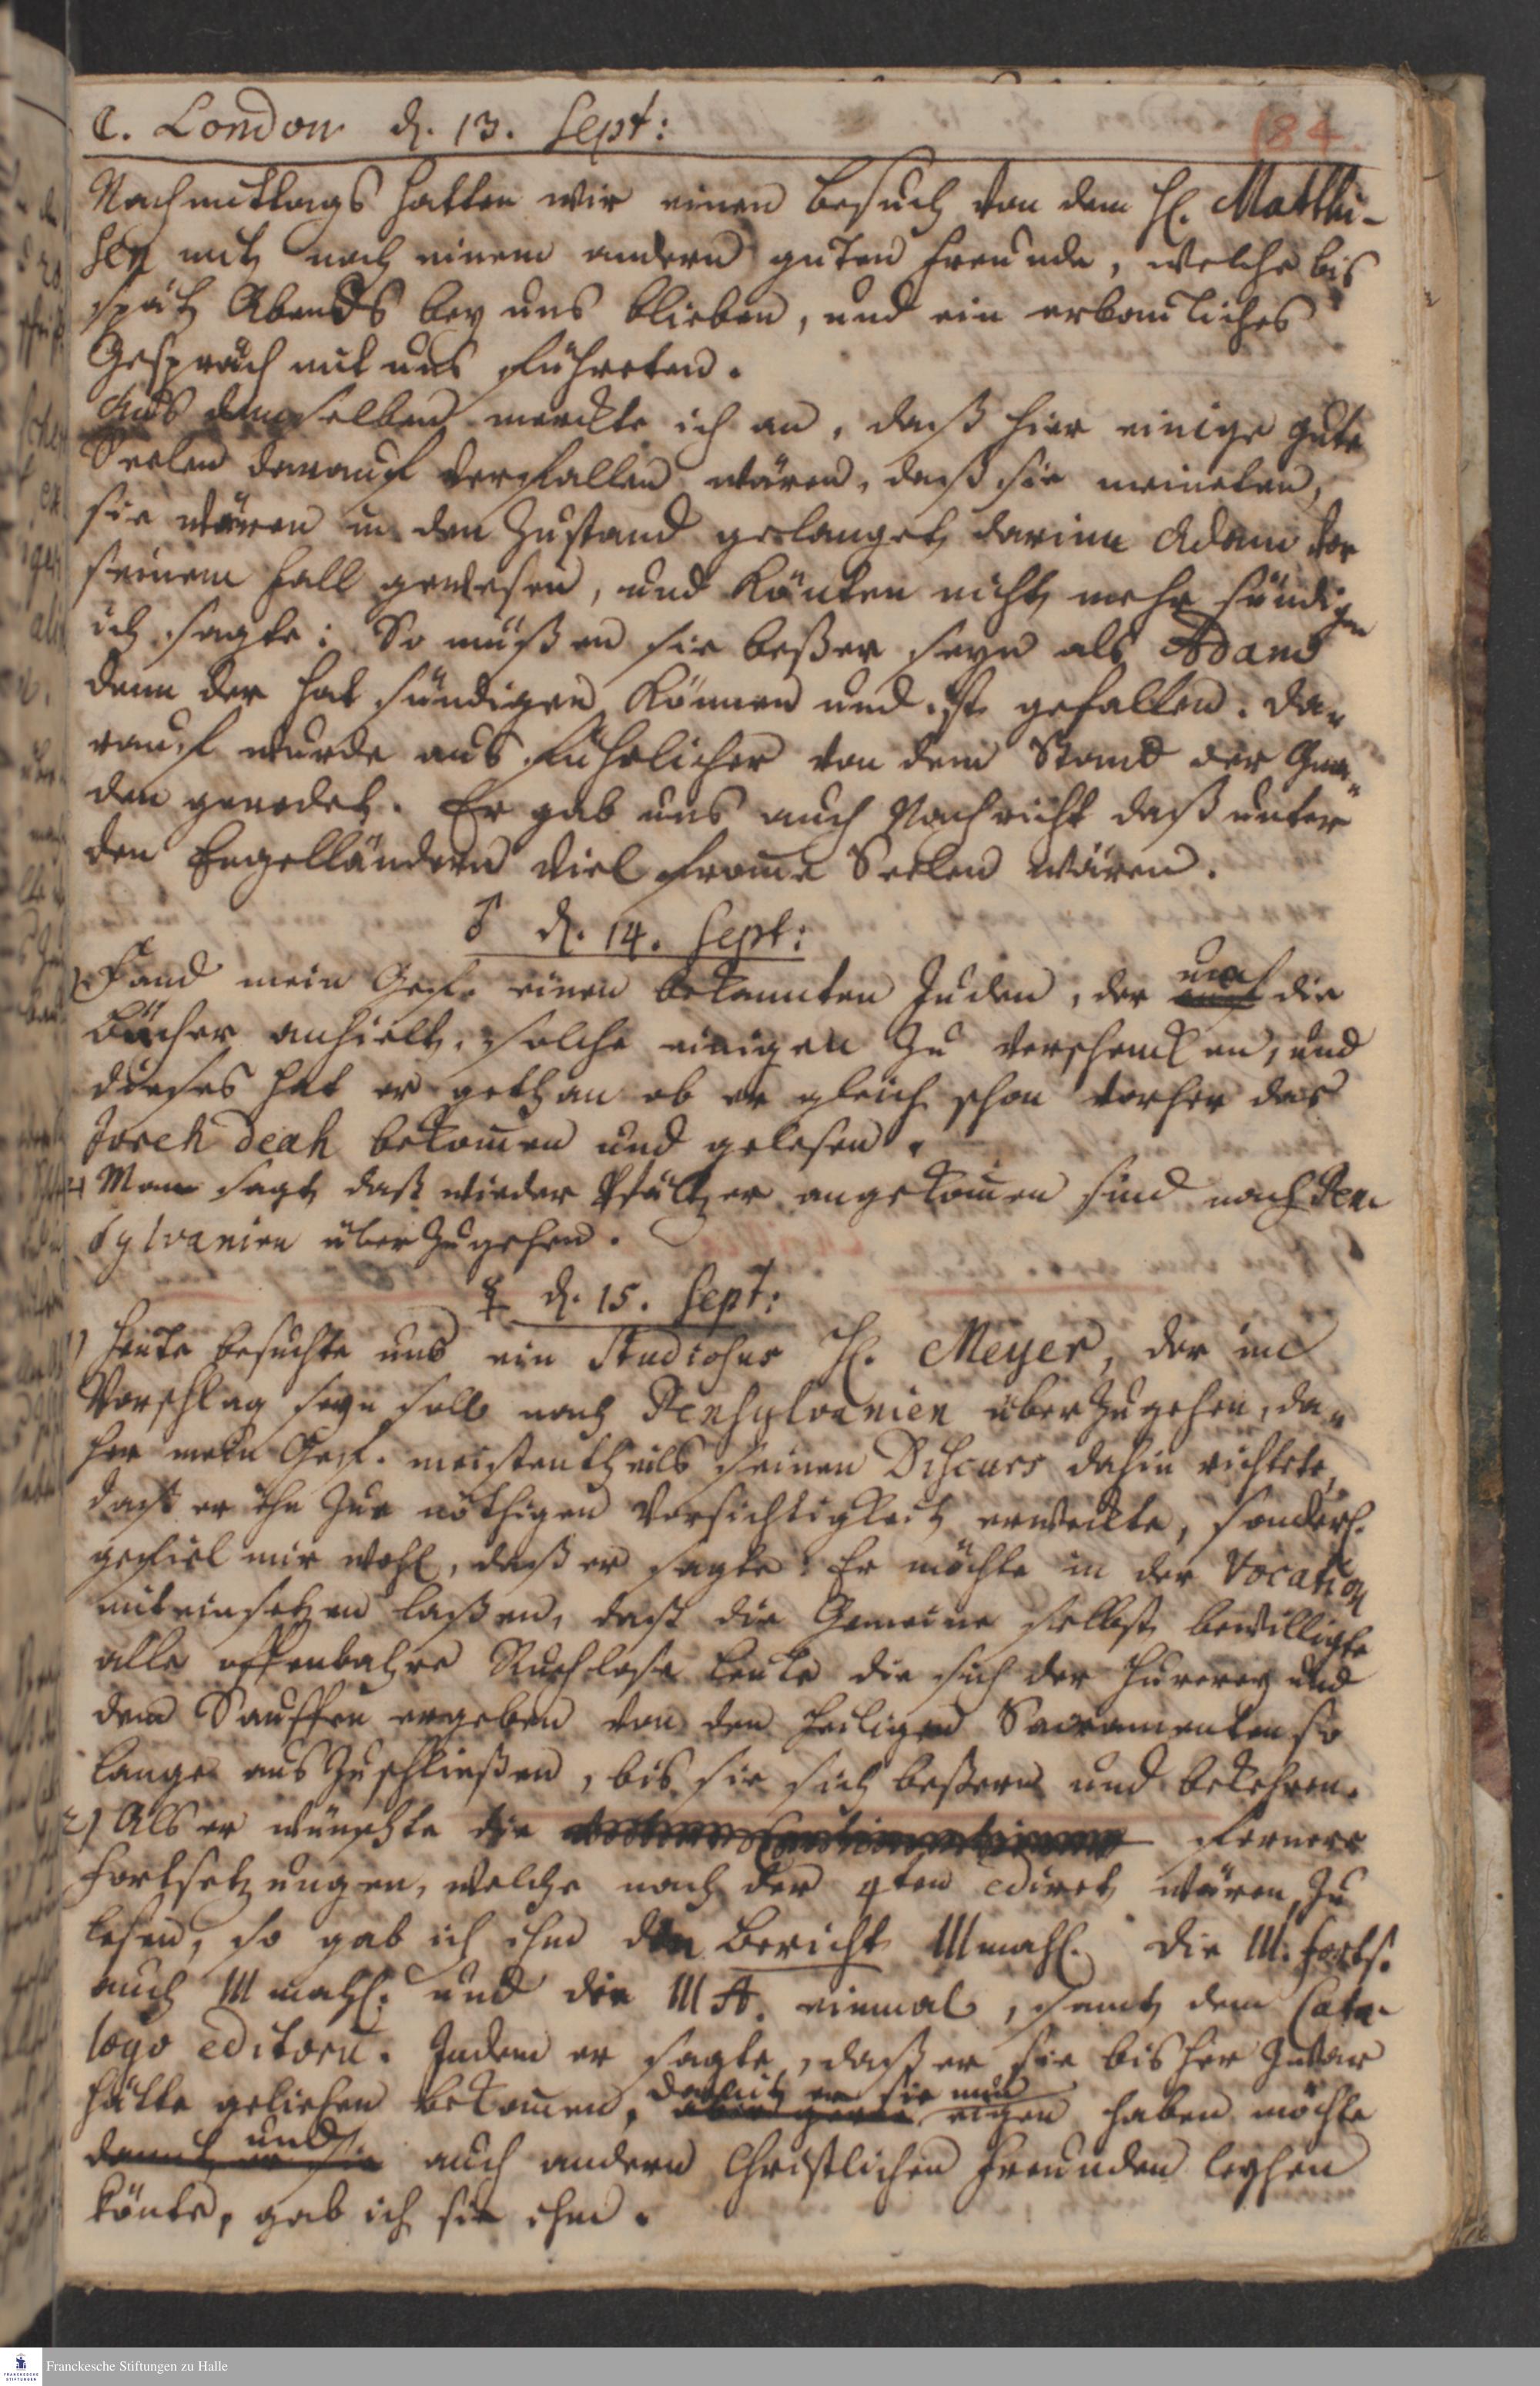 ☾. London d. 13. Sept:
184.
Nachmittags hatten wir einen besuch von dem H. Matthi-
sen mit noch einem andern guten Freunde, welche bis
spät Abends bey uns blieben, und ein erbauliches
Gespräch mit uns führeten.
Aus demselben merckte ich an, daß hier einige gute
Seelen darauf verfallen wären, daß sie meineten,
sie wären in den Zustand gelanget darinn Adam vor
seinem Fall gewesen, und könten nicht mehr sündigen
ich sagte: So müßen sie beßer seyn als Adam
denn der hat sündigen können und ist gefallen. Da-
rauf wurde ausführlicher von dem Stand der Gna-
den geredet. Er gab uns auch Nachricht daß unter
den Engelländern viel from̄e Seelen wären.
♂ d. 14. Sept:
1) Fand mein Gef. einen bekannten Juden, der um die
Bücher anhielt, solche einigen zu verschencken, und
dieses hat er gethan ob er gleich schon vorher das
Joreh deah bekom̄en und gelesen.
2) Man sagt daß wieder Pfältzer angekom̄en sind nach Pen
sylvanien über zu gehen.
☿ d. 15. Sept:
1) Heute besuchte uns ein Studiosus H. Meyer, der im
Vorschlag seyn soll nach Pensylvanien über zu gehen, da-
her mein Gef. meistentheils seinen Discurs dahin richtete,
daß er ihn zur nöthigen Vorsichtigkeit erweckte, sonderl.
gefiel mir wohl, daß er sagte: Er möchte in der Vocation
mit einsetzen laßen, daß die Gemeine selbst bewilligte
alle offenbahre Ruchlose Leute die sich der Hurerey und
dem Sauffen ergeben von den heiligen Sacramenten so
lange auszuschließen, bis sie sich beßern und bekehren.
2) Als er wünschte die fernere
Fortsetzungen, welche nach der 4ten ediret wären, zu
lesen, so gab ich ihm den Bericht III mahl. die III. Forts.
auch III mahl. und die III A. einmal, samt dem Cata-
logo editoru. Indem er sagte, daß er sie bisher zwar
hätte geliehen bekom̄en, damit er sie nun eigen haben möchte
und auch andern Christlichen Freunden leyhen
könte, gab ich sie ihm.
Franckesche Stiftungen zu Halle